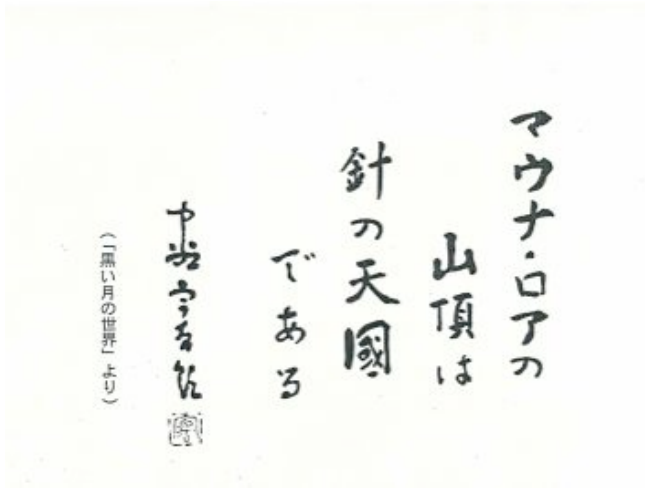 マウナ・ロアの
山頂は
針の天國
である
中谷宇吉郎
(「黒い月の世界」より)